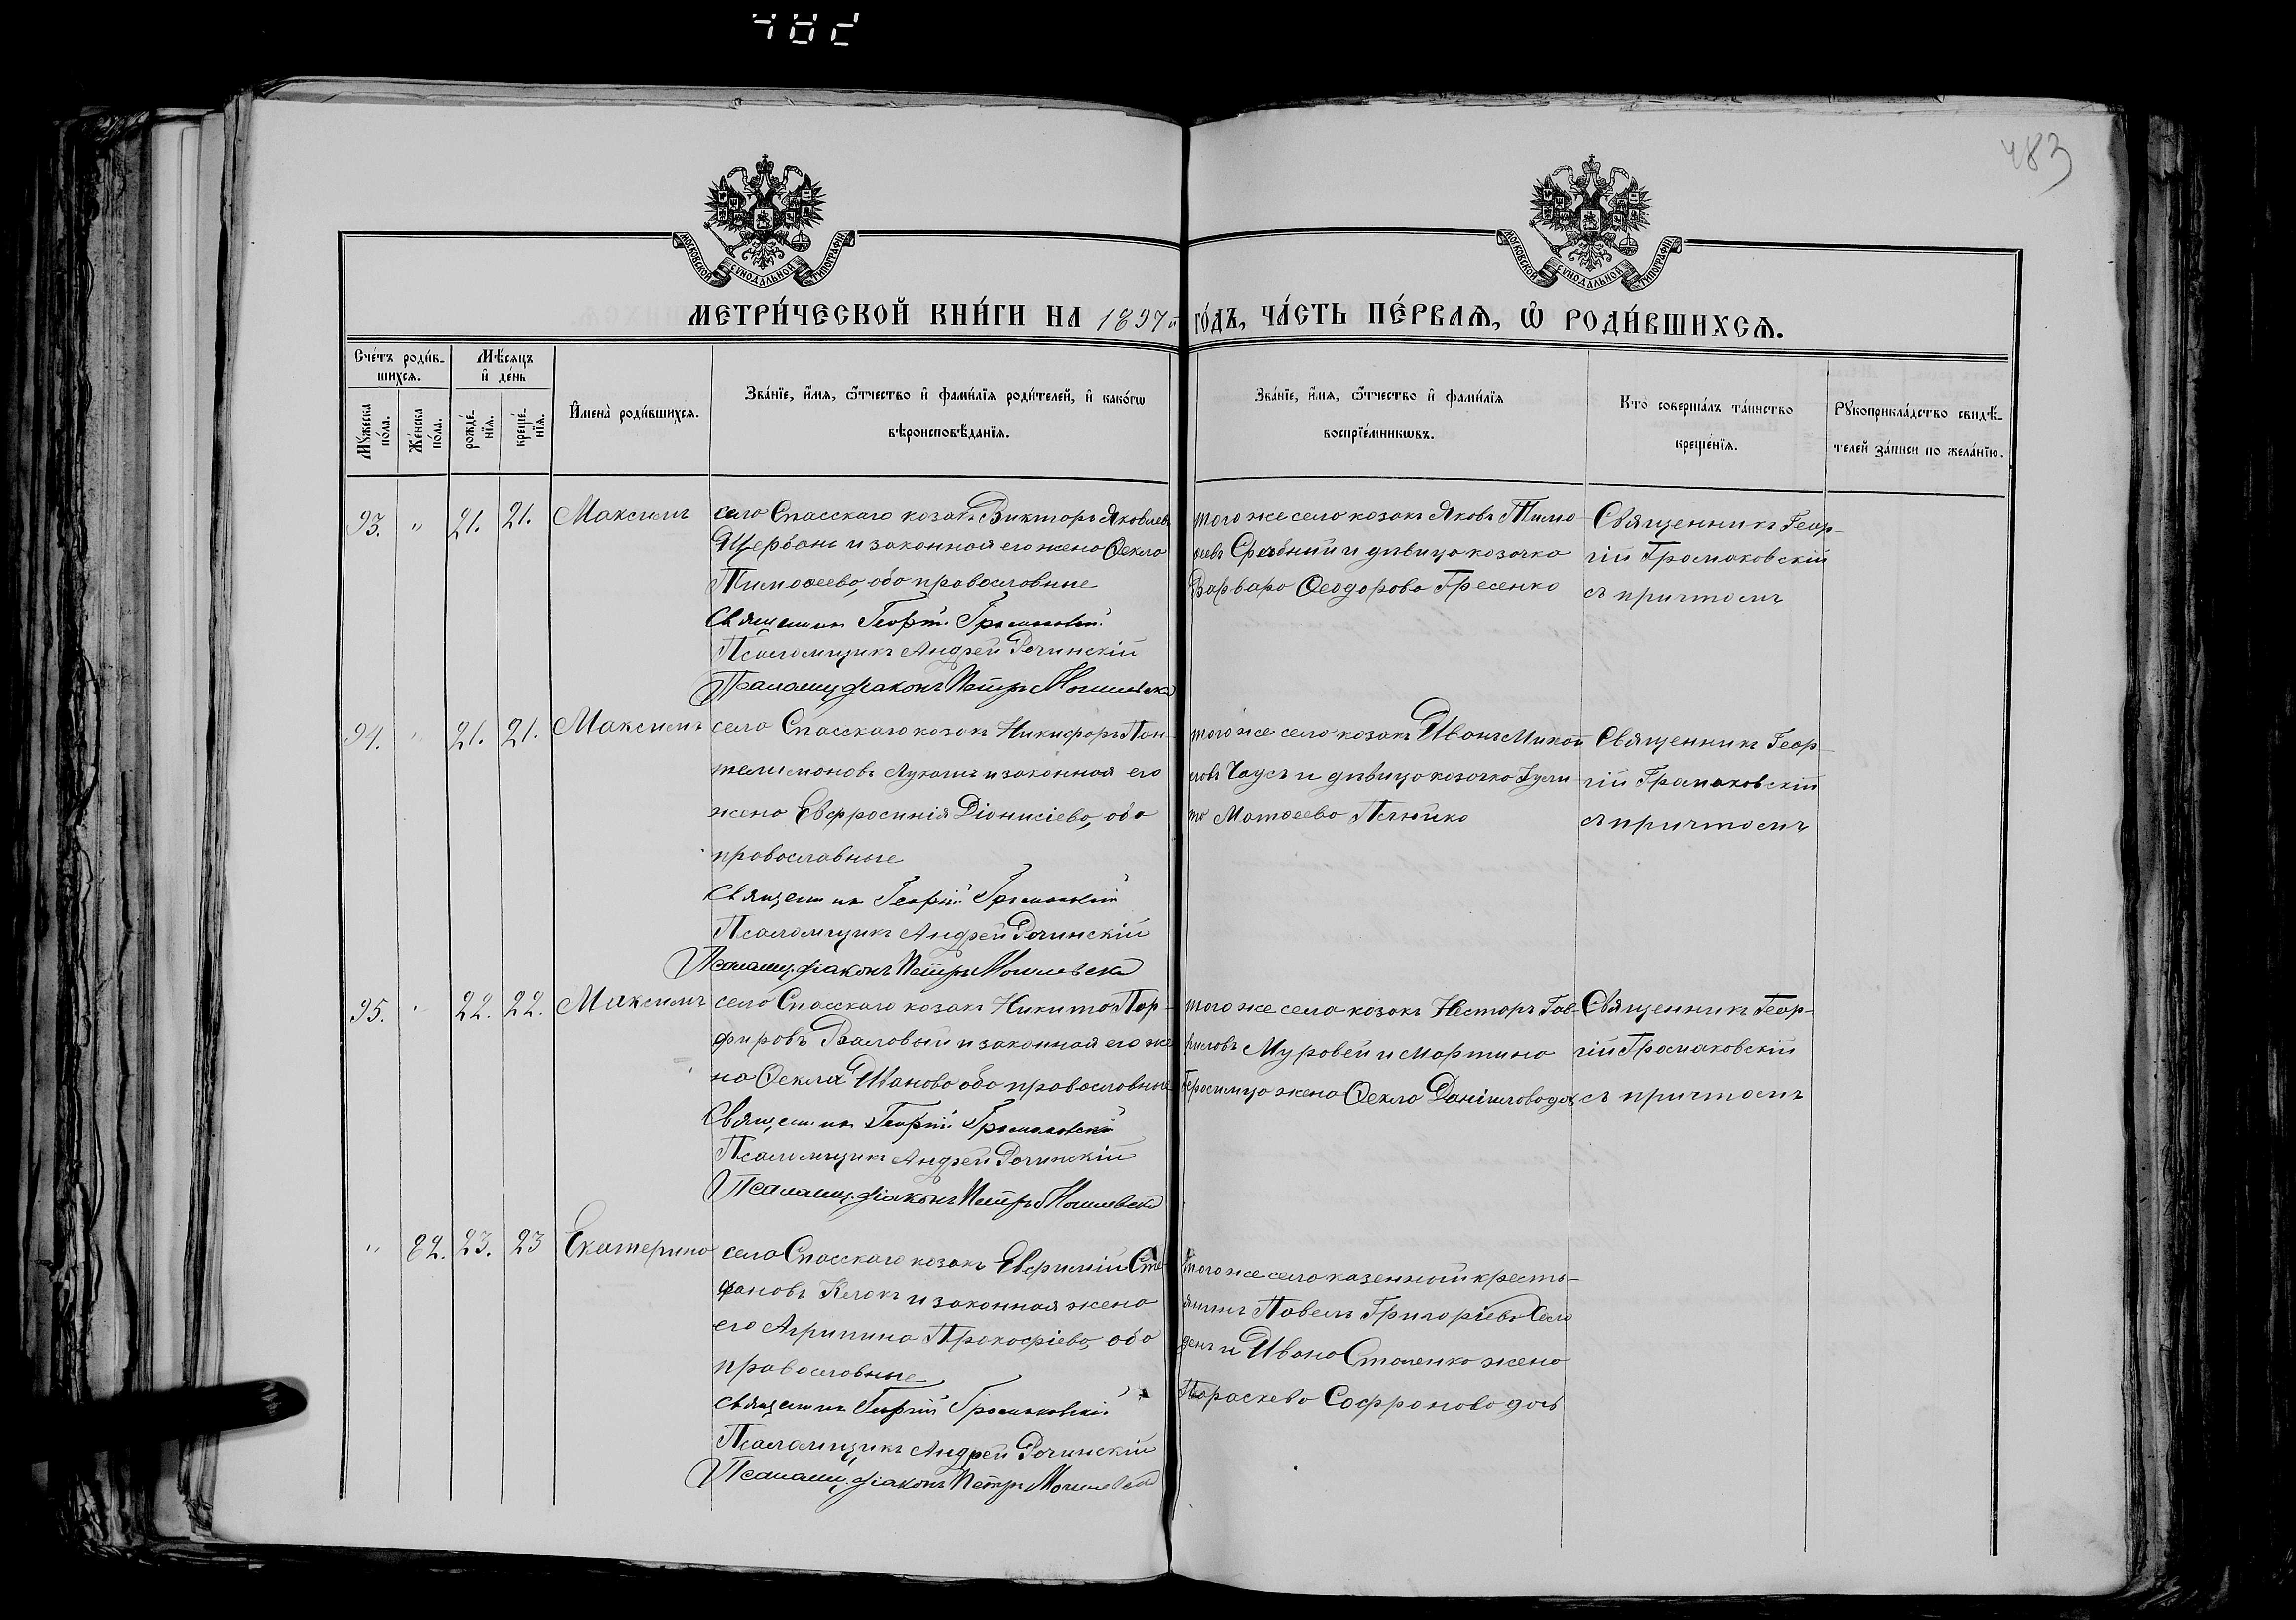 483
МОСКОВСКОЙ СУНОДАЛЬНОЙ ТИПОГРАФІИ
МОСКОВСКОЙ СУНОДАЛЬНОЙ ТИПОГРАФІИ
МЕТРИ́ЧЕСКОЙ КНИ́ГИ НА 1897й ГО́ДЪ, ЧА́СТЬ ПЕ́РВАѦ, Ѡ РОДИ́ВШИХСѦ.
Сче́тъ роди́в-
шихсѧ.
Мѣ́сѧцъ
и де́нь
Мꙋжеска по́ла.
Же́нска по́ла.
рожде́-нїѧ.
креще́-нїѧ.
Имена̀ роди́вшихсѧ.
Зва́нїе, и́мѧ, ѻ́тчество и фами́лїѧ роди́телей, и како́гѡ
вѣроисповѣ́данїѧ.
Зва́нїе, и́мѧ, ѻ́тчество и фами́лїѧ
воспрїе́мникѡвъ.
Кто̀ соверша́лъ та́инство
креще́нїѧ.
Рꙋкоприкла́дство свидѣ́-
телей за́писи по жела́нїю.
93. " 21. 21. Максимъ
села Спасскаго козакъ Викторъ Яковлевъ
Щербань и законная его жена Ѳекла
Тимоѳеева, оба православные
Священникъ Георгій Громаковскій
Псаломщикъ Андрей Рочинскій
Псаломщ. діаконъ Петръ
того же села козакъ Яковъ Тимо-
ѳеевъ и дѣвица козачка
Варвара Ѳеодорова Гресенко
Священникъ Геор-
гій Громаковскій
съ причтомъ
94. " 21. 21. Максимъ
села Спасскаго козакъ Никифоръ Пан-
телимоновъ Лукашъ и законная его
жена Евфросинія Діонисіева, оба
православные
Священникъ Георгій Громаковскій
Псаломщикъ Андрей Рочинскій
Псаломщ. діаконъ Петръ
того же села козакъ Иванъ Михаи
ловъ Чаусъ и дѣвица козачка Іули
та Матѳеева
Священникъ Геор-
гій Громаковскій
съ причтомъ
95. " 22. 22. Максимъ
села Спасскаго козакъ Никита Пор-
фировъ Валовый и законная его же
на Ѳекла Иванова оба православные
Священникъ Георгій Громаковскій
Псаломщикъ Андрей Рочинскій
Псаломщ. діаконъ Петръ
того же села козакъ Несторъ Гав-
риловъ Муровей и Мартина
жена Ѳекла Даніилова дочь
Священникъ Геор-
гій Громаковскій
съ причтомъ
" 82. 23. 23 Екатерина
села Спасскаго козакъ Евфимій Сте-
фановъ Клокъ и законная жена
его Агрипина Прокофіева, оба
православные
Священникъ Георгій Громаковскій
Псаломщикъ Андрей Рочинскій
Псаломщ. діаконъ Петръ
того же села казенный кресть-
янинъ Павелъ Григоріевъ
и Ивана жена
Параскева Софронова дочь